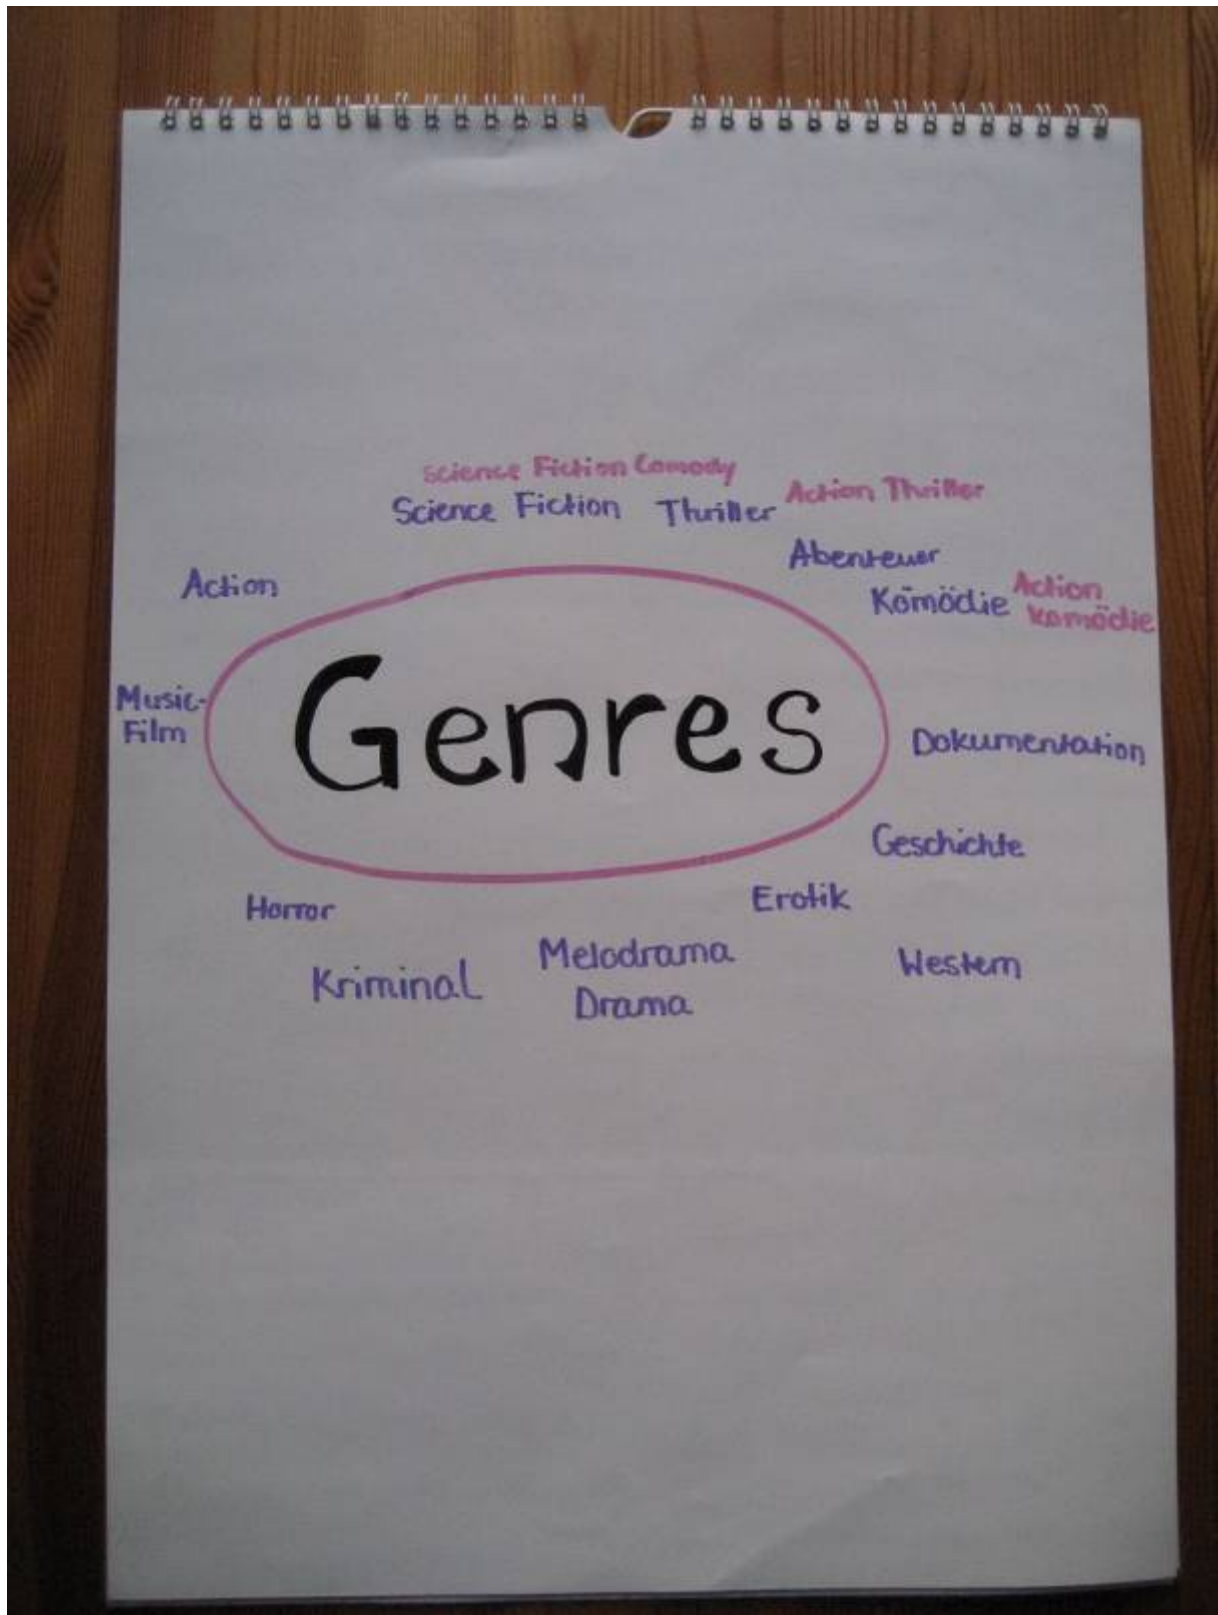 Science Fiction Comody
Science Fiction Thriller Action Thriller
Abenteuer
Kömödie Action
Komödie
Action
Music-
Film
Genres
Dokumentation
Geschichte
Erotik
Horror
Melodrama
Drama
Kriminal
Western